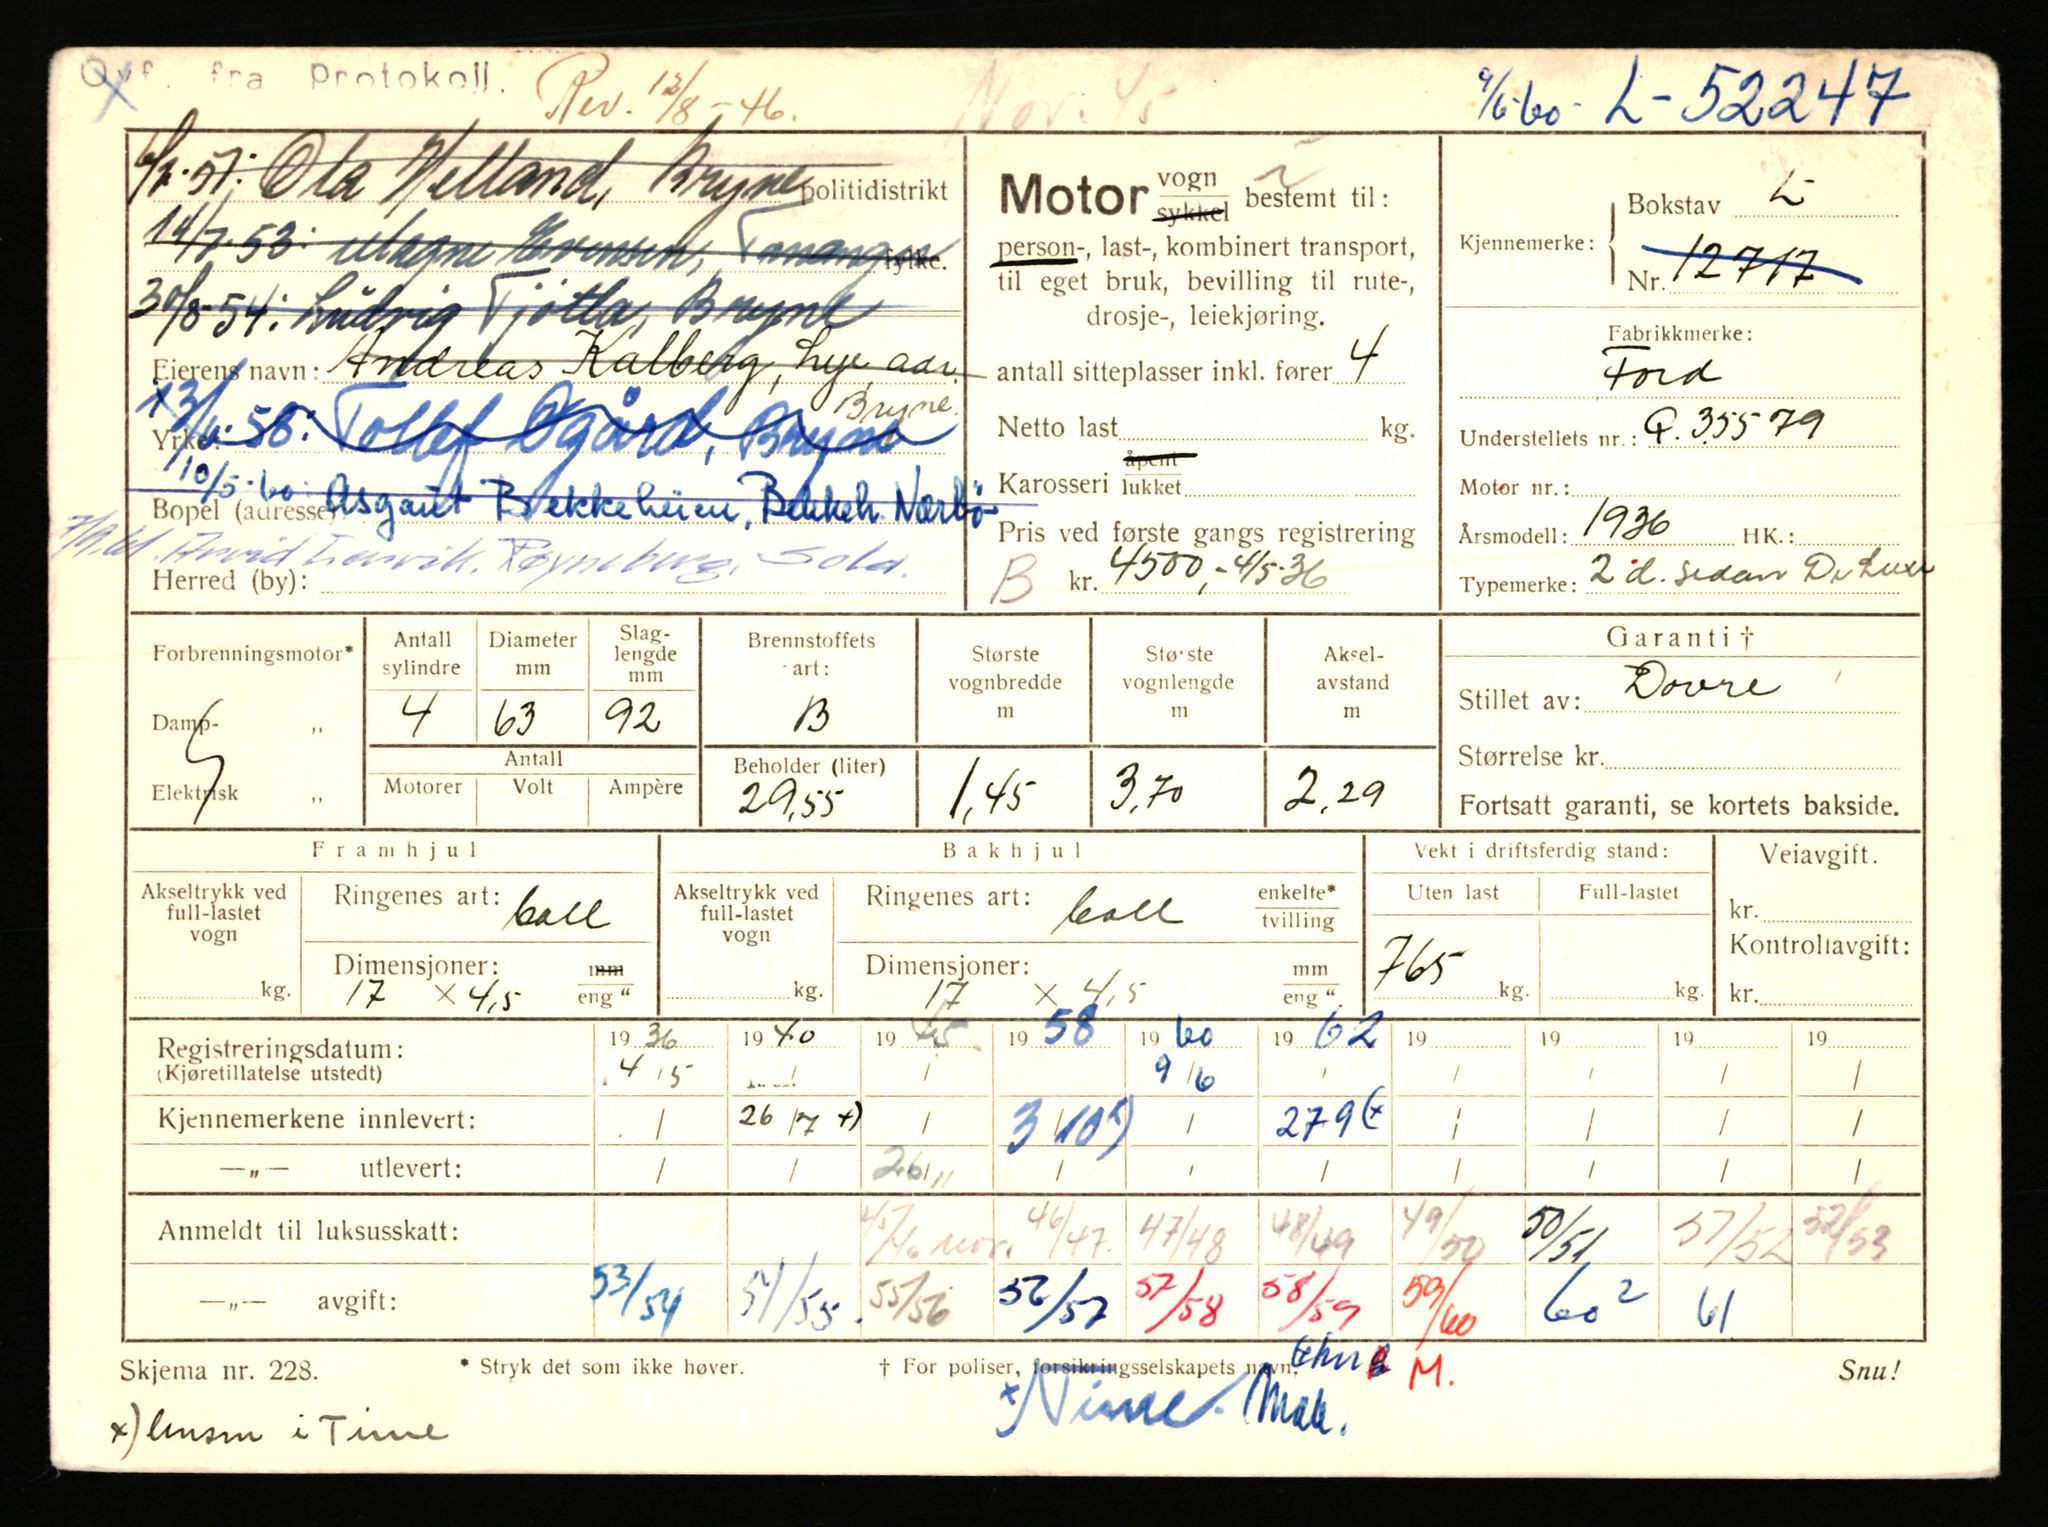 fra Protokoll.
Rev. 12/8-46.
Nov. 45
9/6-60- L-52247
57: Ola Helland, Bryne politidistrikt
14/7.53: Magne Evensen, Tananger fylke.
30/8-54: Ludvig Tjøtta, Bryne
Eierens navn: Andreas Kalberg, Lye, adr. Bryne.
Yrke: 58: Tollef Øgård, Bryne
10/5-60: Asgaut Brekkeheien, Bekkeh. Nærbö
Bopel (adresse):
Arvid Lervik, Røyneberg, Sola.
Herred (by):
Motor vogn sykkel bestemt til:
person-, last-, kombinert transport,
til eget bruk, bevilling til rute-,
drosje-, leiekjøring.
antall sitteplasser inkl. fører 4
Netto last kg.
Karosseri åpent lukket
Pris ved første gangs registrering
B kr. 4500,- 4/5-36
Kjennemerke: Bokstav L
Nr. 12717
Fabrikkmerke:
Ford
Understellets nr.: 35579
Motor nr.:
Årsmodell: 1936 HK.:
Typemerke: 2 d. sedan De Luxe
Forbrenningsmotor*
Damp- „
Elektrisk „
Antall sylindre 4
Diameter mm 63
Slaglengde mm 92
Antall
Motorer Volt Ampère
Brennstoffets art: B
Beholder (liter) 29,55
Største vognbredde m 1,45
Største vognlengde m 3,70
Akselavstand m 2,29
Garanti †
Stillet av: Dovre
Størrelse kr.
Fortsatt garanti, se kortets bakside.
Framhjul
Akseltrykk ved full-lastet vogn kg.
Ringenes art: ball
Dimensjoner: mm eng “
17 × 4,5
Bakhjul
Akseltrykk ved full-lastet vogn kg.
Ringenes art: ball enkelte* tvilling
Dimensjoner: mm eng “
17 × 4,5
Vekt i driftsferdig stand:
Uten last Full-lastet
765 kg. kg.
Veiavgift.
kr.
Kontrollavgift:
kr.
Registreringsdatum: 19 36 19 40 19 45 19 58 19 60 19 62 19 19 19 19
(Kjøretillatelse utstedt) 4/5 9/6
Kjennemerkene innlevert: 26/7 x) 3/10 x) 279 (x
—„— utlevert: 26/11
Anmeldt til luksusskatt: 45/46 nov. 46/47. 47/48 48/49 49/50 50/51 51/52 52/53
—„— avgift: 53/54 54/55. 55/56 56/57 57/58 58/59 59/60 60² 61
Skjema nr. 228.
* Stryk det som ikke høver.
† For poliser, forsikringsselskapets navn.
M.
Snu!
x) i Time
x) Time.